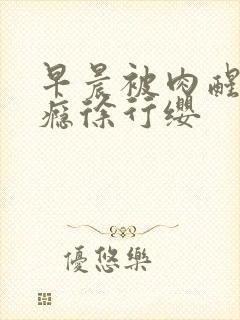 早晨被肉醒
瘾徐行缨
優悠樂